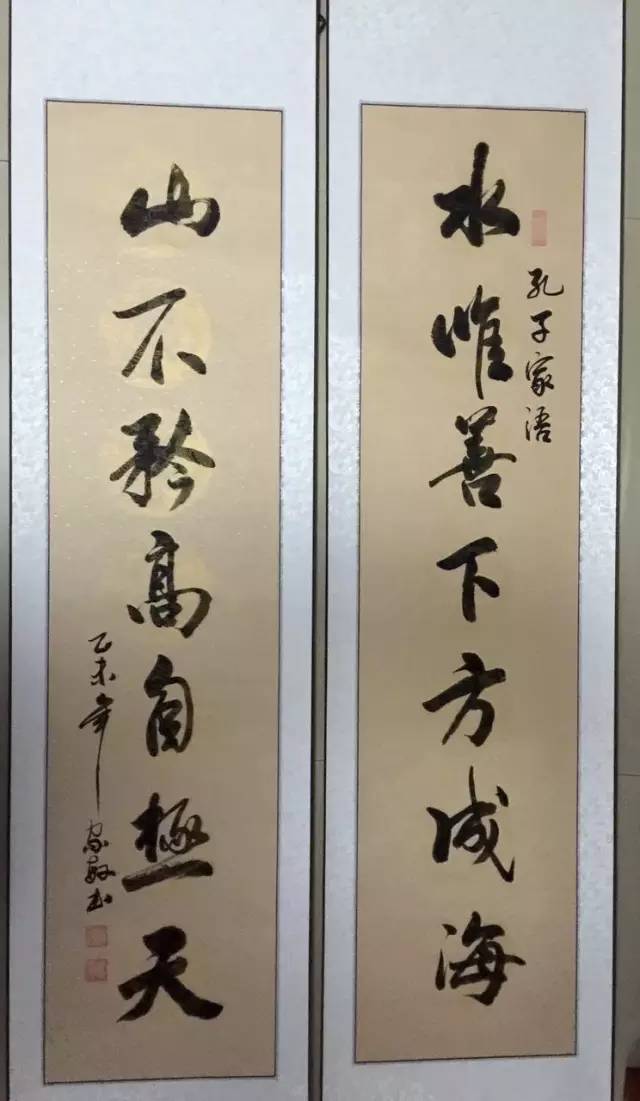 孔子家语
水惟善下方成海
山不矜高自極天
乙未年 家